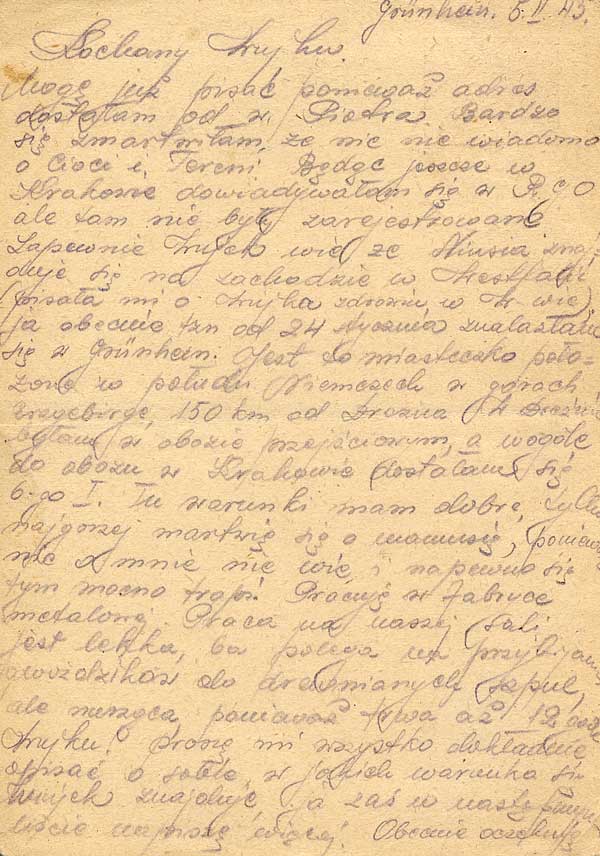 Grünhein. 5.II.43.
Kochany Wujku.
Mogę już pisać ponieważ adres
dostałam od w. Piotra Bardzo
się zmartwiłam, że nic nie wiadomo
o Cioci i Tereni Będąc jeszcze w
Krakowie dowiadywałam się w RGO
ale tam nie były zarejestrowane
Zapewnie Wujek wie że Niusia znaj-
duje się na zachodzie w Westfalii
(pisała mi o Wujka zdrowiu w W-wie)
ja obecnie tzn od 24 stycznia znalazłam
się w Grünhein. Jest to miasteczko poło-
żone w połud. Niemczech w górach
Erzgebirge, 150 km od Drezna W Dreźnie
byłam w obozie przejściowym, a wogóle
do obozu w Krakowie dostałam się
6-go I. Tu warunki mam dobre, tylko
najgorzej martwię się o mamusię, ponieważ
nic o mnie nie wie, i napewno się
tym mocno trapi. Pracuję w fabryce
metalowej. Praca na naszej sali
jest lekka, bo polega na przybijaniu
gwoździków do drewnianych szpul,
ale nużąca ponieważ trwa aż 12 godz
Wujku! proszę mi wszystko dokładnie
opisać o sobie, w jakich warunka się
Wujek znajduje, ja zaś w następnym
liście napiszę więcej. Obecnie oczekuję